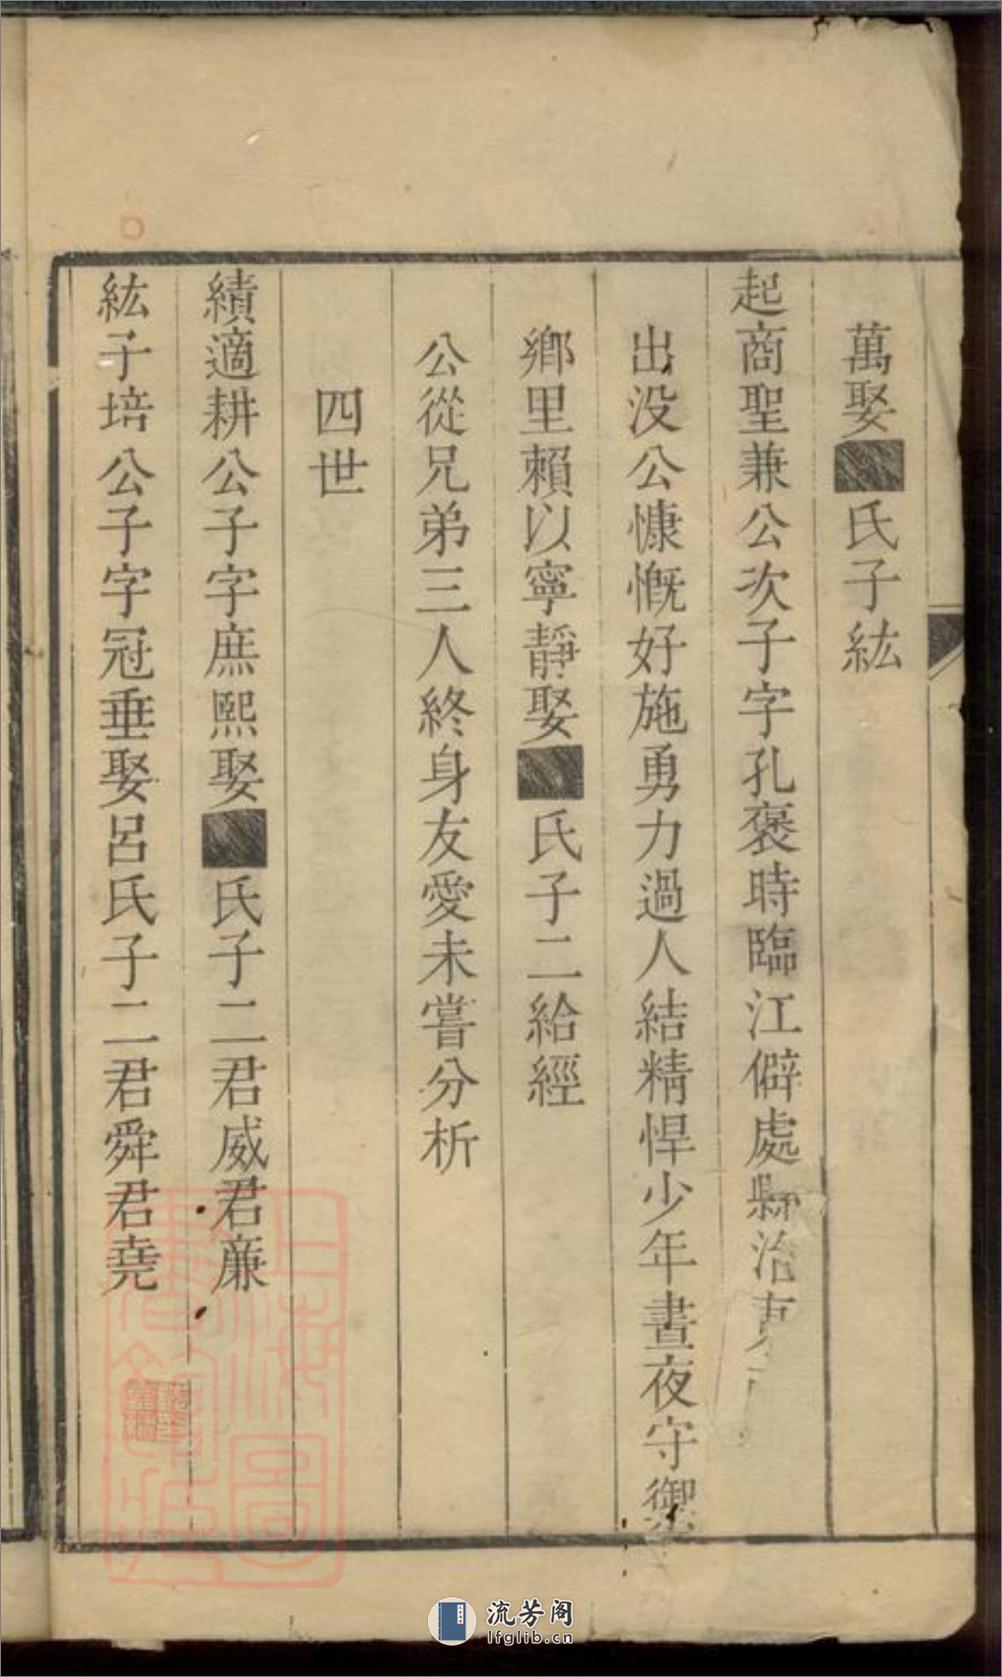 萬娶■氏子紘
起商聖兼公次子字孔褒時臨江僻處縣治
出没公慷慨好施勇力過人結精悍少年晝夜守禦
鄉里賴以寧靜娶■氏子二給經
公從兄弟三人終身友愛未嘗分析
四世
績適耕公子字庶熙娶■氏子二君威君亷
紘子培公子字冠垂娶呂氏子二君舜君堯
上海圖書館藏
流芳阁
lfglib.cn